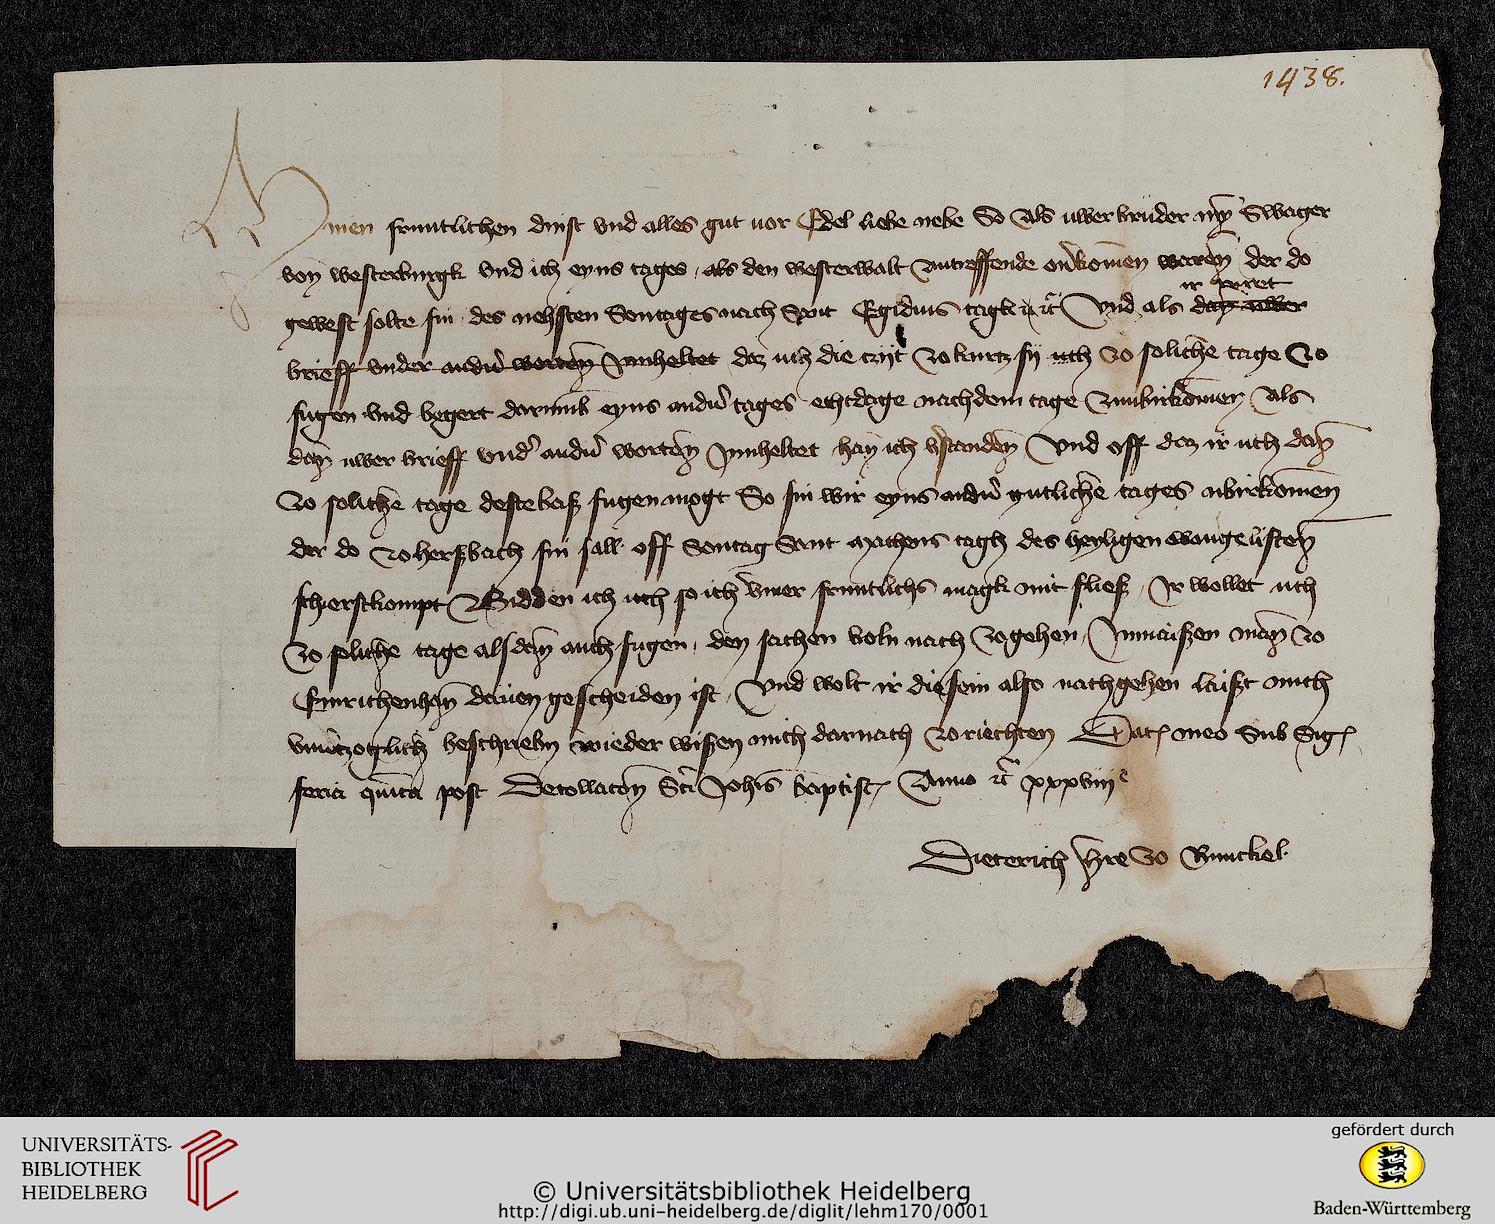 1438.
Minen fruntlichen dinst vnd alles gut uor Edel liebe nebe So Als uwer bruder myn Swager
von westerburgk vnd ich eyns tages als den westerwalt antreffende der do
ir seret
gewest solte sin des nehsten Sontages nach Sent Egidius tagk Vnd als dan uwer
brieff vnder worten Innheltet daz uch die czijt zo kurtz sij uch zo soliche tage zo
fugen vnd begert darumb eyns andern tages echtdage nach dem tage Als
dan uwer brieff vnder andern worten Innheltet han ich verstanden Vnd off daz ir uch dan
zo soliche tage deste baß fugen mogt So sin wir eyns andern gutliche tages
der do zo herßbach sin sall off Sontag Sent Matheus tagh des heyligen ewangelisten
schierstkompt Bidden ich uch so ich ummer fruntlichs magk mit fließ Ir wollet uch
zo soliche tage alsdan auch fugen den sachen voln nach zogehen Inmaißen man zo
dauen gescheiden ist Vnd wolt ir diesem also nachgehen laißt mich
vnuerzoglich beschrieben wieder wißen mich darnach zo riechten Dat meo Sub Sig
feria quinta post Decollacon Sci Johis baptist Anno xxxviii
Dieterich here zo Runckel
UNIVERSITÄTS-
BIBLIOTHEK
HEIDELBERG
© Universitätsbibliothek Heidelberg
http://digi.ub.uni-heidelberg.de/diglit/lehm170/0001
gefördert durch
Baden-Württemberg